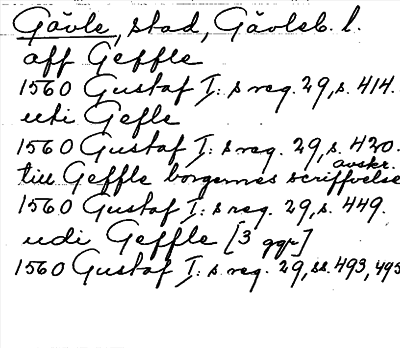 Gävle, stad, Gävleb. l.
aff Geffle
1560 Gustaf I:s reg. 29, s. 414.
uti Gefle
1560 Gustaf I:s reg. 29, s. 420.
avskr.
till Geffle borgernes scriffvelse
1560 Gustaf I:s reg. 29, s. 449.
udi Geffle [3 ggr]
1560 Gustaf I:s reg. 29, ss. 493, 495